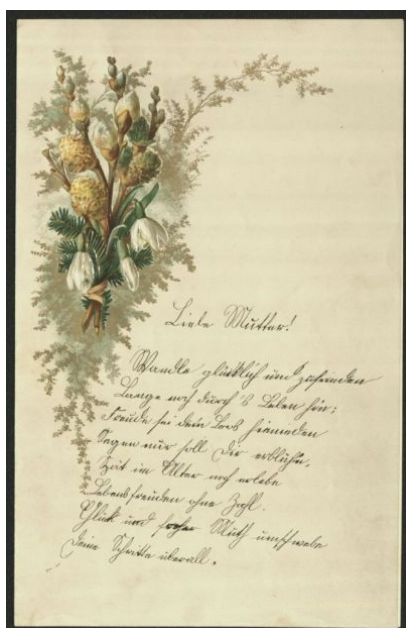 Liebe Mutter!
Wandle glücklich und zufrieden
Lange noch durch's Leben hin;
Freude sei dein Loos hienieden
Segen nur soll Dir erblühn,
im Alter noch erlebe
Lebensfreuden ohne Zahl.
Glück und froher Muth umschwebe
Deine Schritte überall.